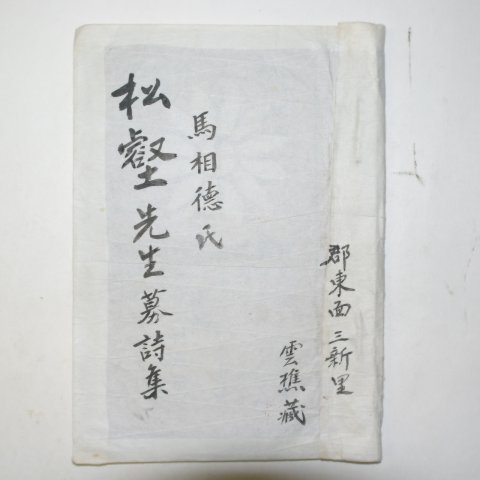 郡東面三新里
雲樵藏
馬相德氏
松壑先生募詩集